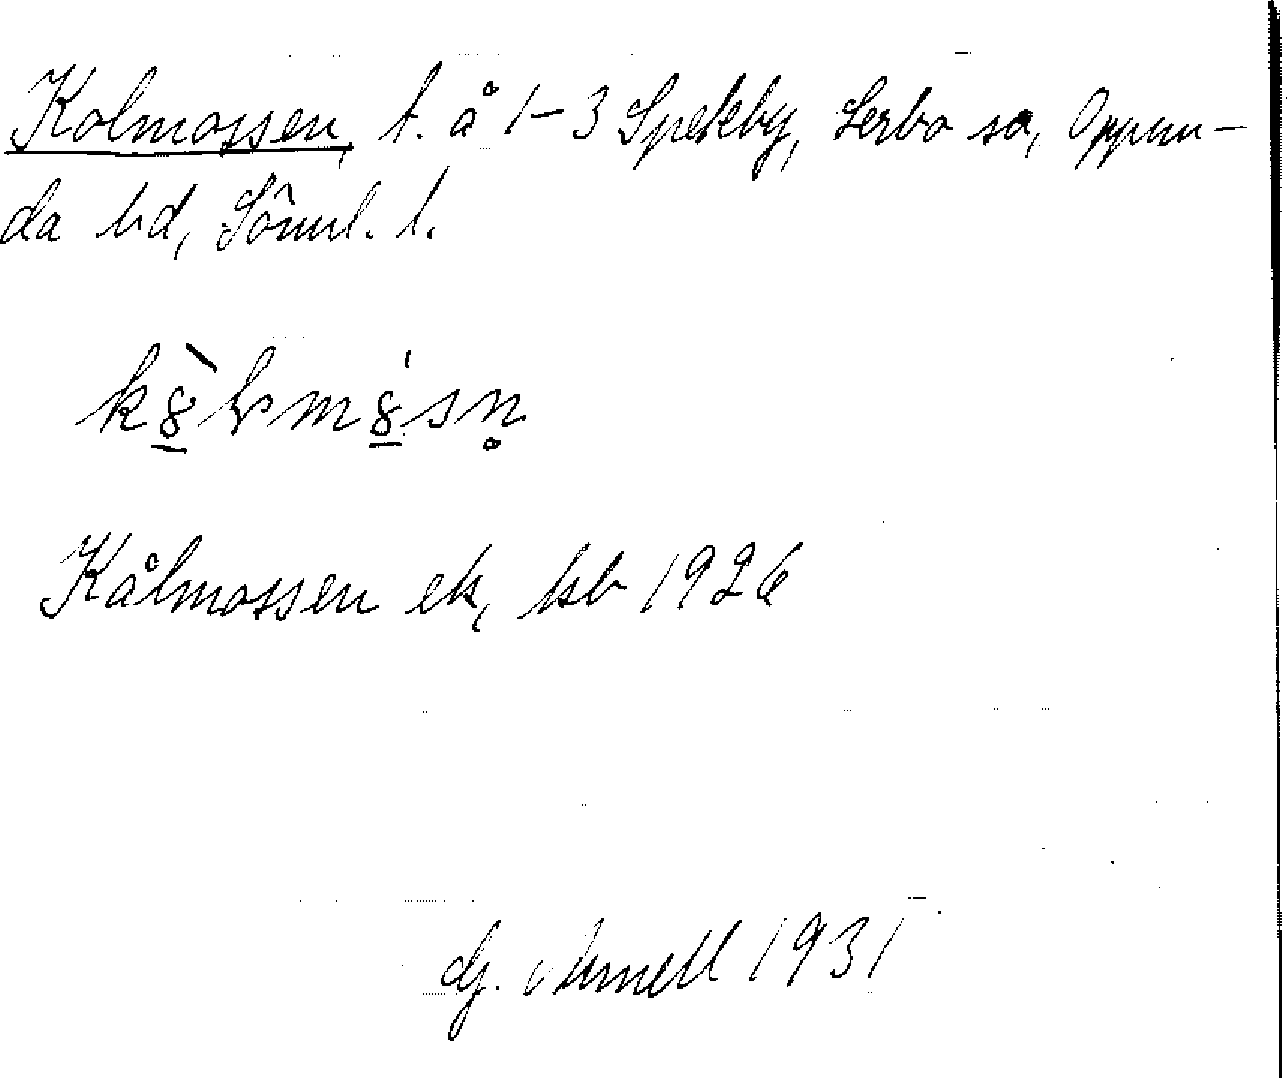 Kolmossen, t. å 1-3 Spekby, Lerbo sn, Oppun-
da hd, Sörml. l.
Kålmossen ek, kb 1926
Gj. Arnell 1931